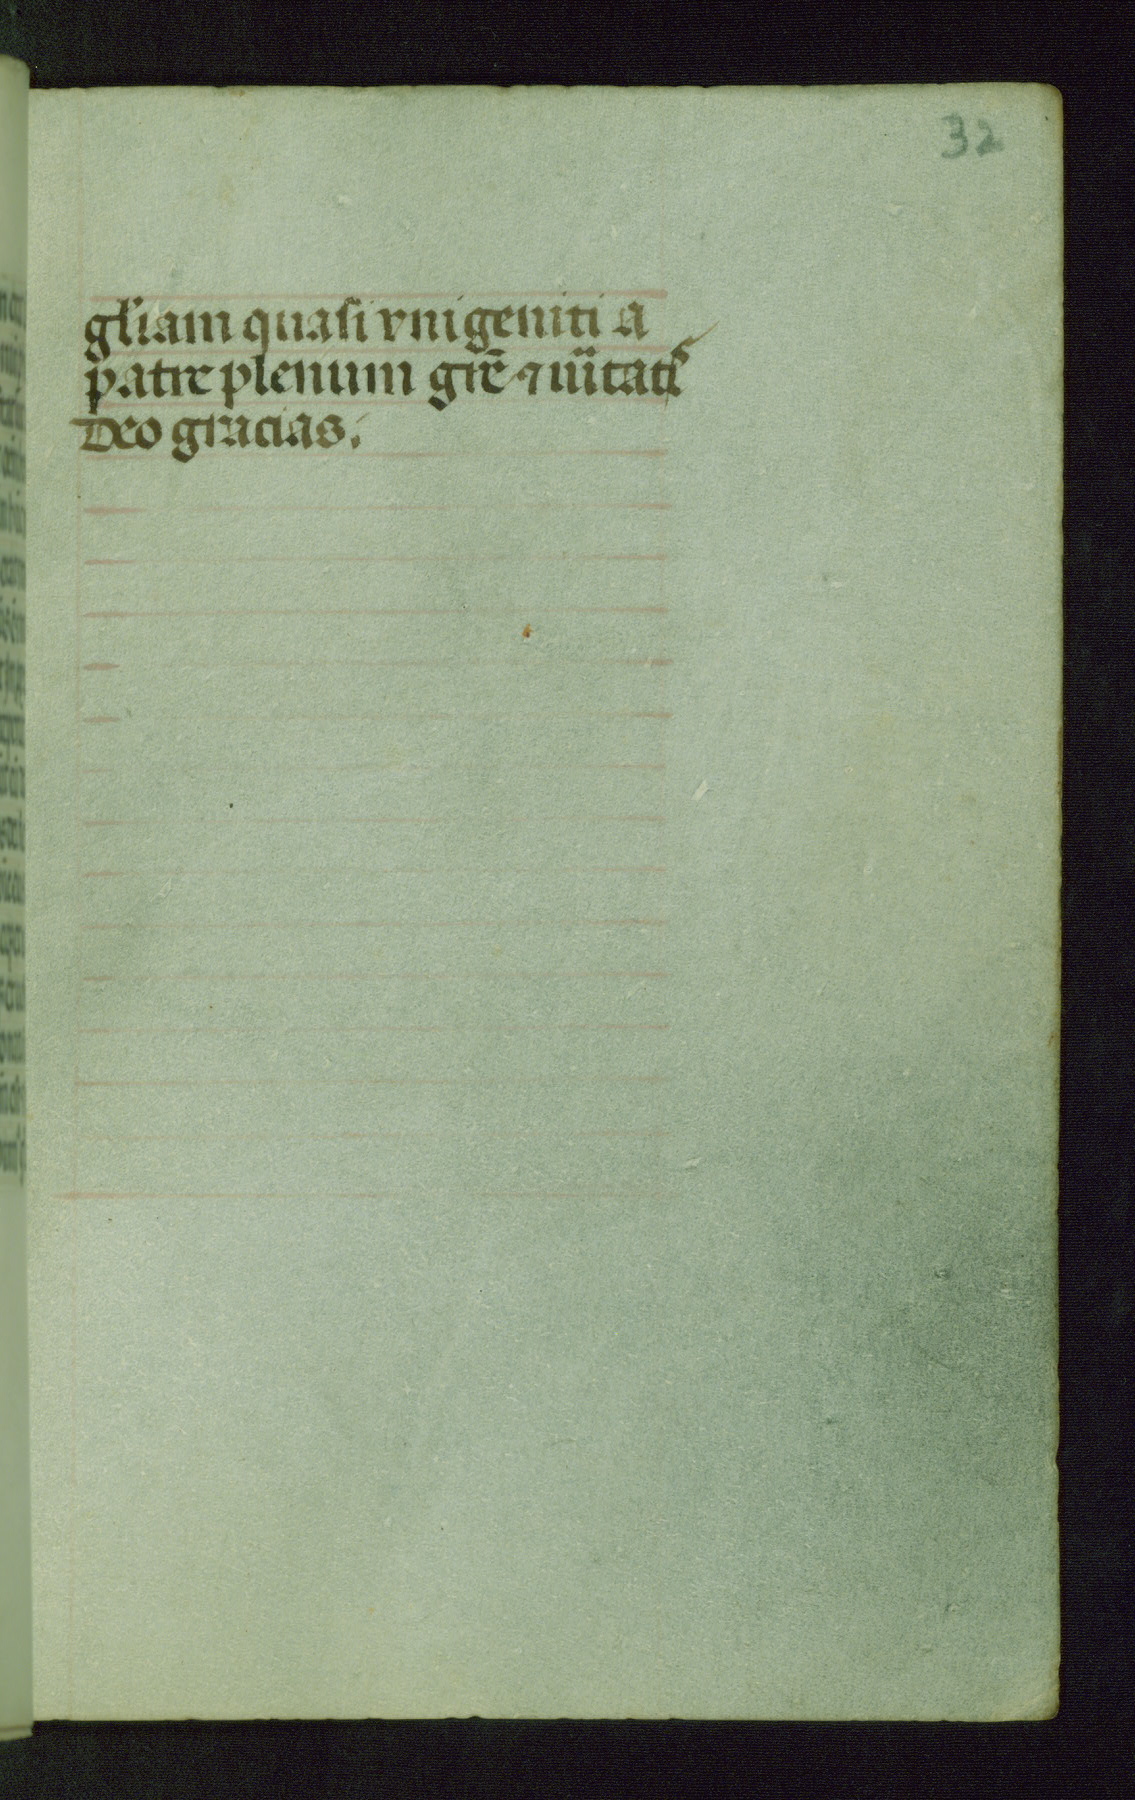 32
gl'iam quasi vnigeniti a
patre plenum gr̄e ⁊ uītatꝭ
Deo gracias.